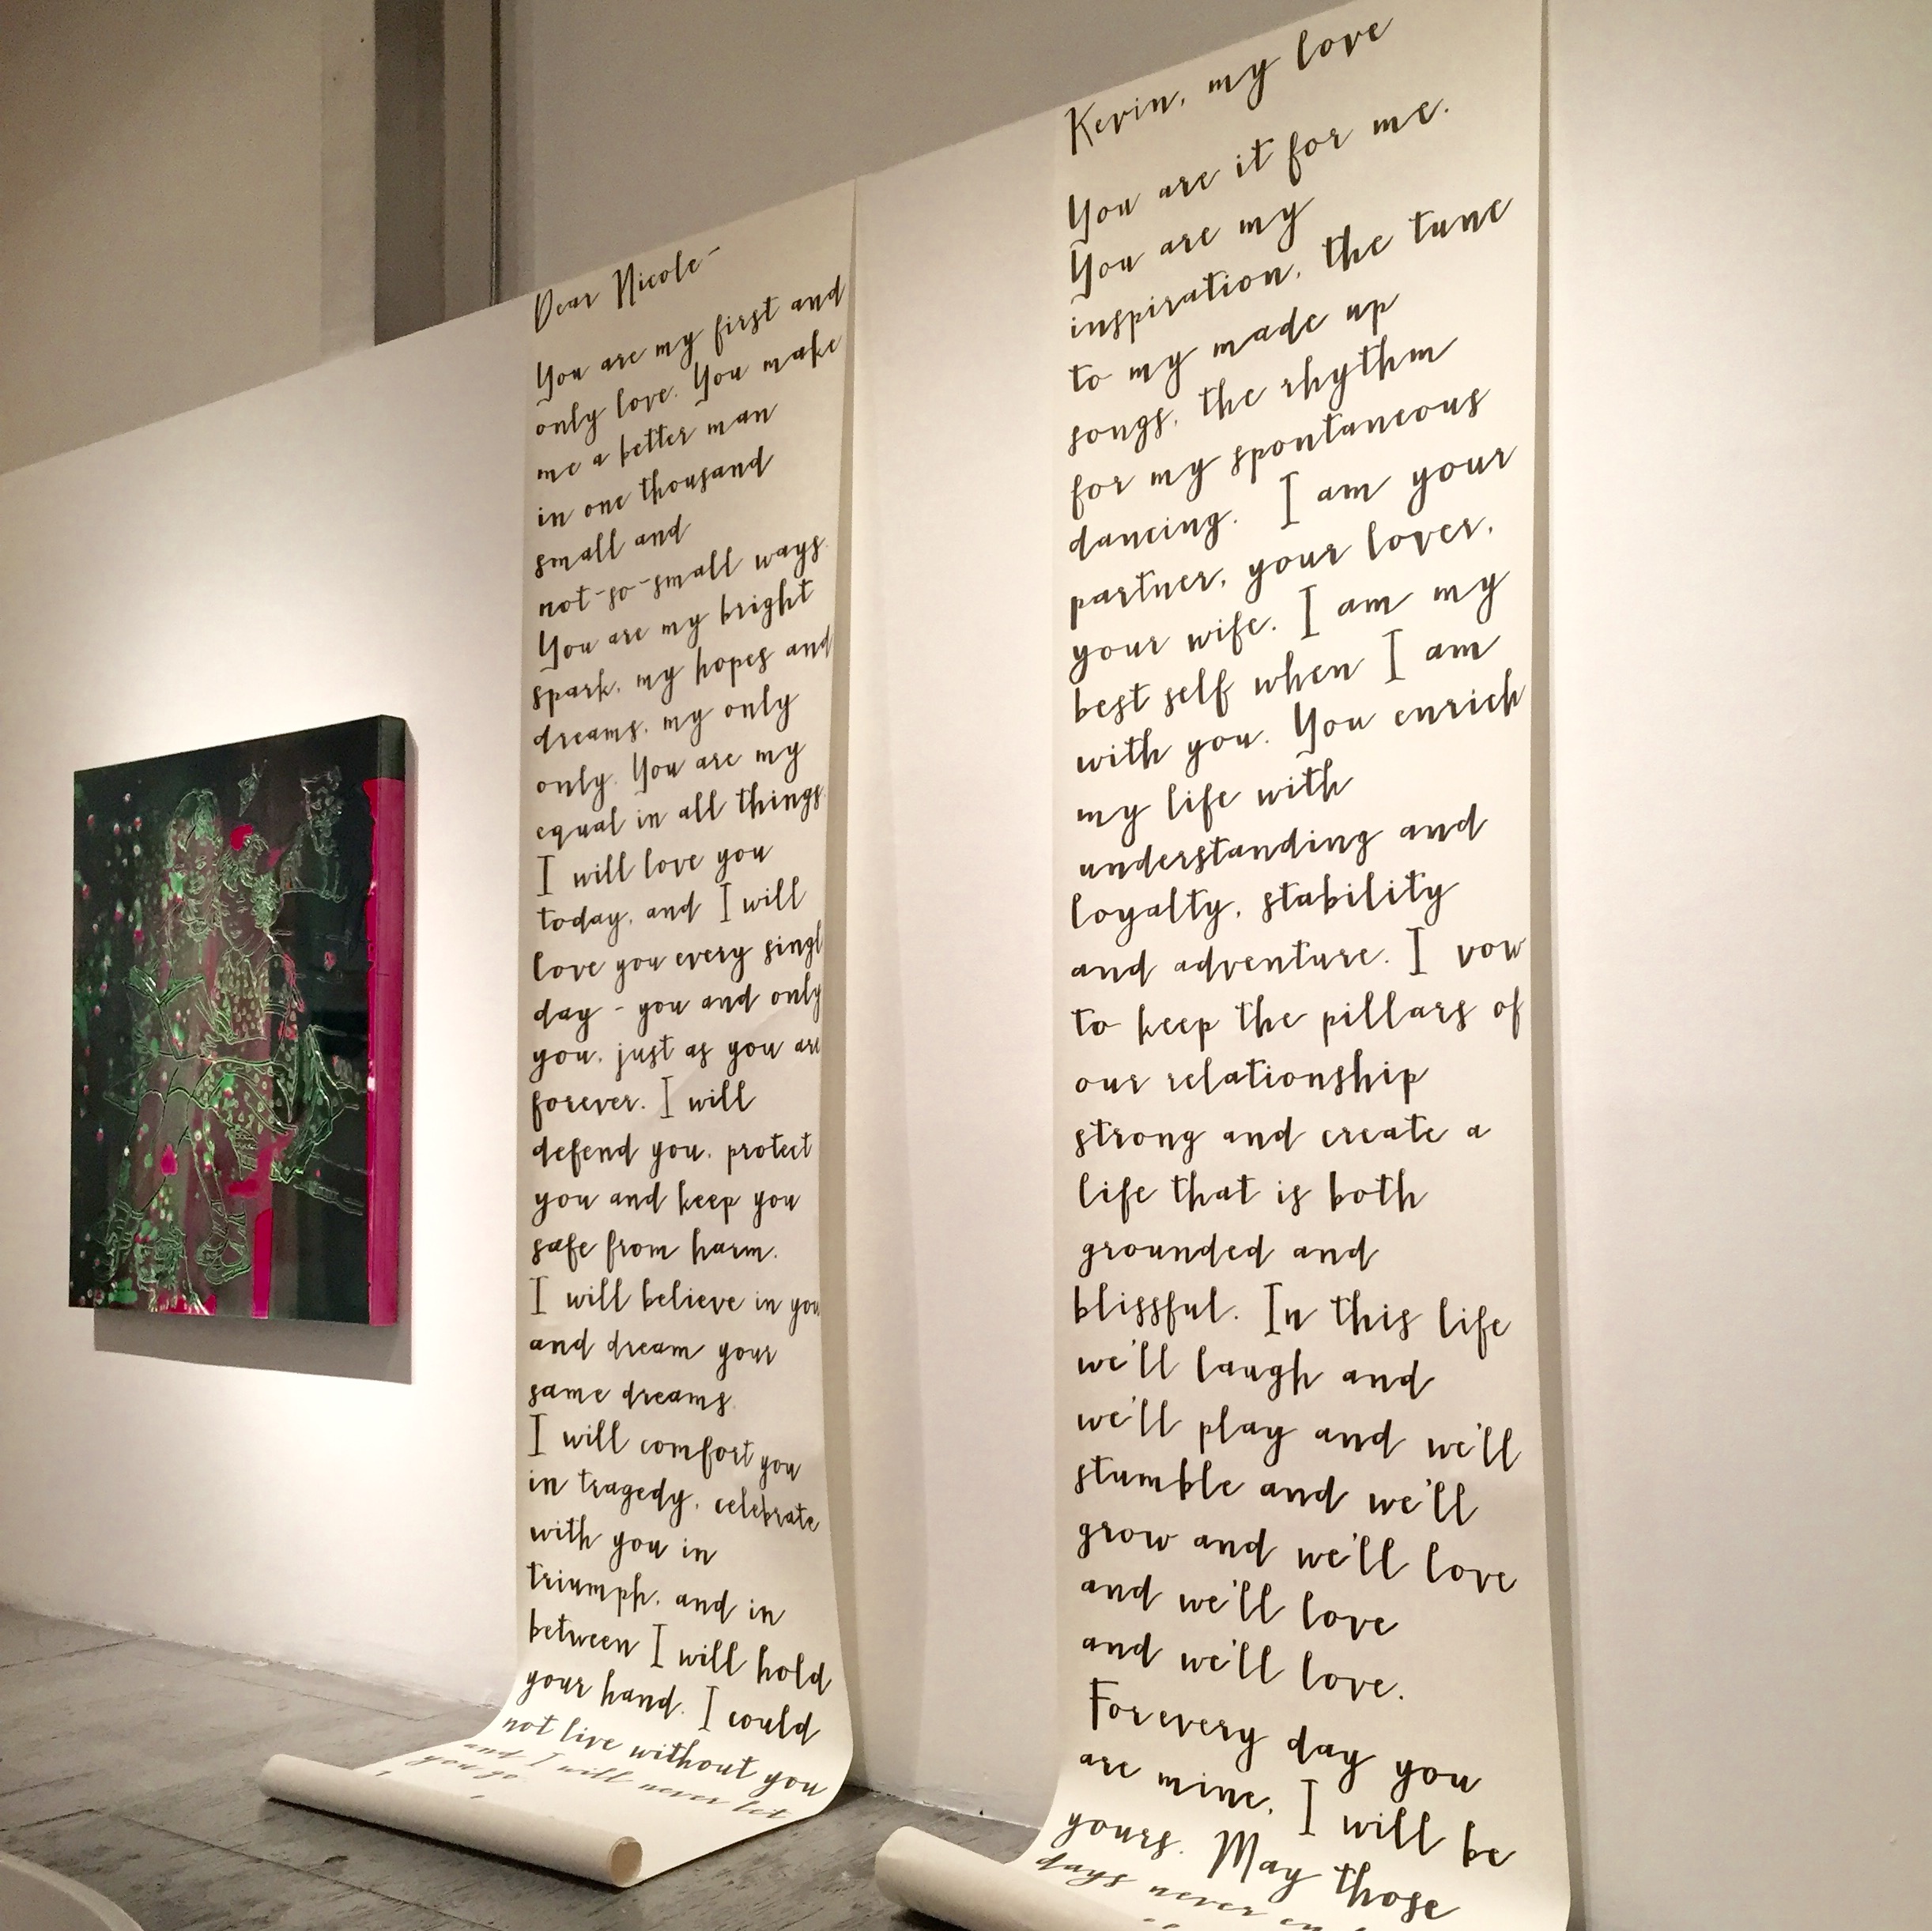 Dear Nicole-
You are my first and
only love. You make
me a better man
in one thousand
small and
not-so-small ways.
You are my bright
spark, my hopes and
dreams, my only
only. You are my
equal in all things.
I will love you
today, and I will
love you every singl
day - you and only
you, just as you are
forever. I will
defend you, protect
you and keep you
safe from harm.
I will believe in you
and dream your
same dreams.
I will comfort you
in tragedy, celebrate
with you in
triumph, and in
between I will hold
your hand. I could
not live without you
and I will never let
you go.
Kevin, my love
You are it for me.
You are my
inspiration, the tune
to my made up
songs, the rhythm
for my spontaneous
dancing. I am your
partner, your lover,
your wife. I am my
best self when I am
with you. You enrich
my life with
understanding and
loyalty, stability
and adventure. I vow
to keep the pillars of
our relationship
strong and create a
life that is both
grounded and
blissful. In this life
we'll laugh and
we'll play and we'll
stumble and we'll
grow and we'll love
and we'll love
and we'll love.
For every day you
are mine, I will be
yours. May those
days never